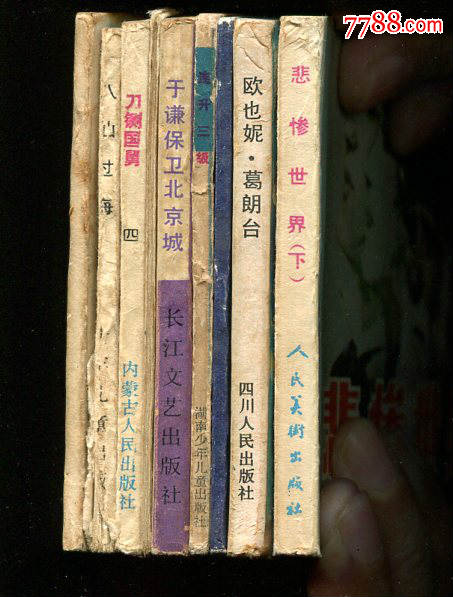 7788.com
悲惨世界(下)
人民美術出版社
欧也妮·葛朗台
四川人民出版社
连升三级
湖南少年儿童出版社
于谦保卫北京城
长江文艺出版社
刀铡国舅
四
内蒙古人民出版社
过海
出版
悲惨